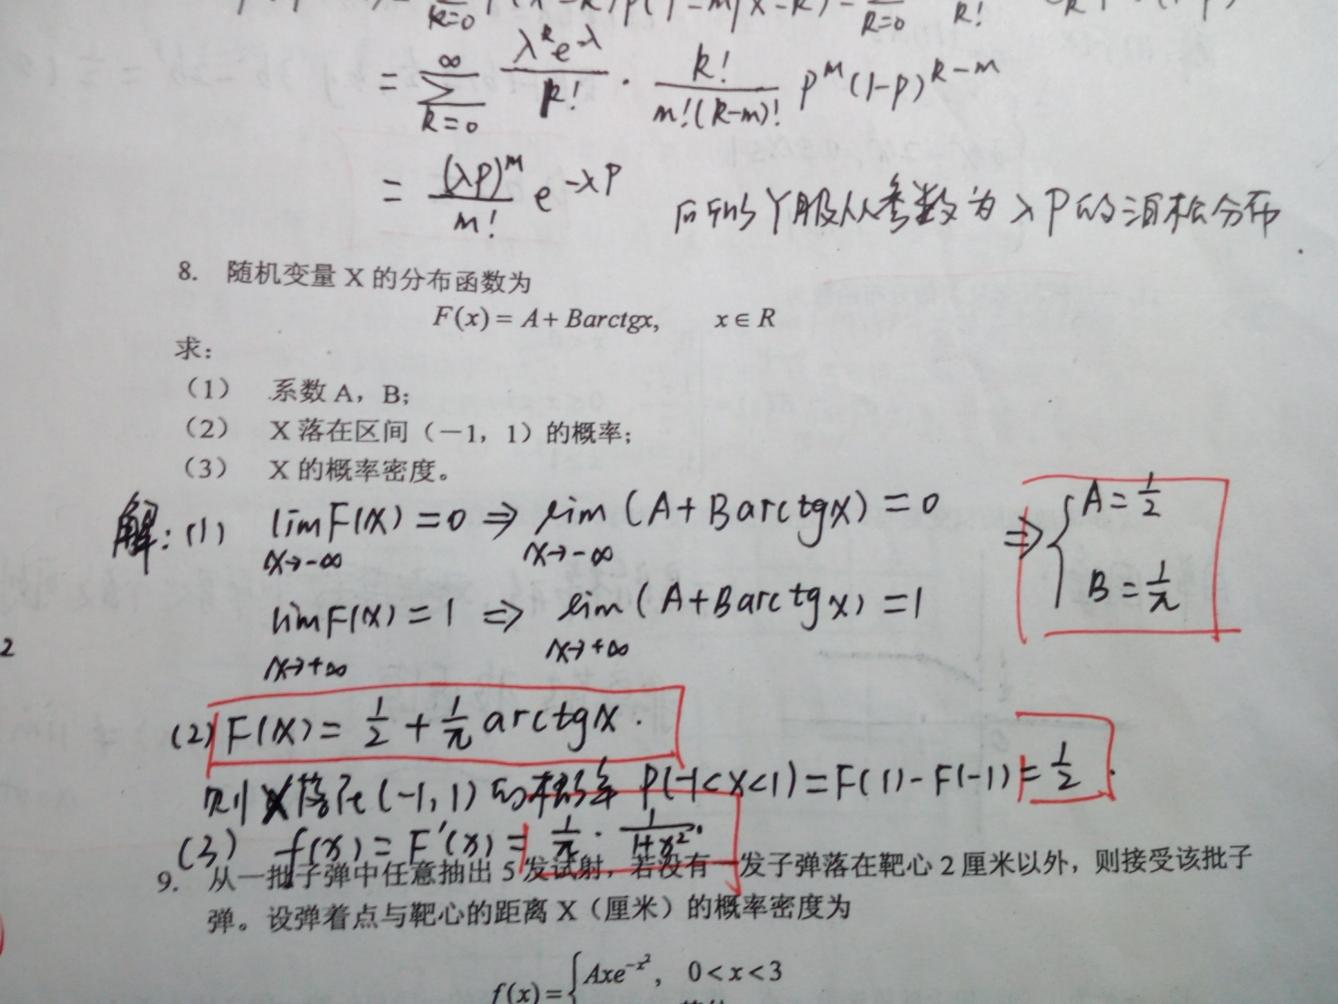 = ∑_{k=0}^{∞} λ^k e^{-λ}/k! · k!/(m!(k-m)!) p^m (1-p)^{k-m}
= (λp)^m/m! e^{-λp} 所以Y服从参数为λP的泊松分布
8. 随机变量 X 的分布函数为
F(x) = A + Barctgx, x∈R
求:
(1) 系数 A，B;
(2) X 落在区间（－1，1）的概率;
(3) X 的概率密度。
解:(1) lim_{x→-∞} F(x) = 0 ⇒ lim_{x→-∞} (A+Barctgx) = 0 ⇒ { A = 1/2
lim_{x→+∞} F(x) = 1 ⇒ lim_{x→+∞} (A+Barctgx) = 1 B = 1/π
2
(2) F(x) = 1/2 + 1/π arctgx.
则X落在(-1,1)的概率 P(-1<X<1) = F(1) - F(-1) = 1/2.
(3) f(x) = F'(x) = 1/π · 1/(1+x²).
9. 从一批子弹中任意抽出 5 发试射，若没有一发子弹落在靶心 2 厘米以外，则接受该批子
弹。设弹着点与靶心的距离 X（厘米）的概率密度为
f(x) = { Axe^{-x²}, 0<x<3